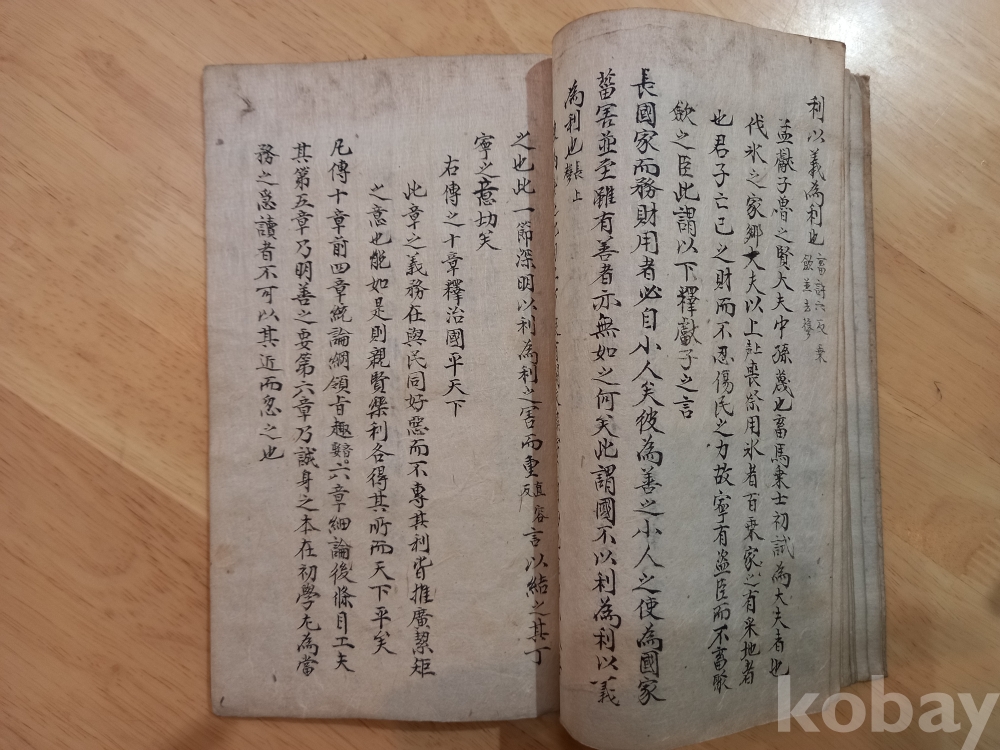 利以義為利也 畜許六反乗
歛並去聲
孟獻子魯之賢大夫仲孫蔑也畜馬乗士初試為大夫者也
伐氷之家卿大夫以上喪祭用氷者百乗家之有采地者
也君子亡己之財而不忍傷民之力故寧有盗臣而不畜聚
歛之臣此謂以下釋獻子之言
長國家而務財用者必自小人矣彼為善之小人之使為國家
菑害並至雖有善者亦無如之何矣此謂國不以利為利以義
為利也 長上聲
之也此一節深明以利為利之害而重 直容反 言以結之其丁
寧之意切矣
右傳之十章釋治國平天下
此章之義務在與民同好惡而不專其利皆推廣絜矩
之意也能如是則親賢樂利各得其所而天下平矣
凡傳十章前四章統論綱領旨趣後六章細論條目工夫
其第五章乃明善之要第六章乃誠身之本在初學尤為當
務之急讀者不可以其近而忽之也
kobay